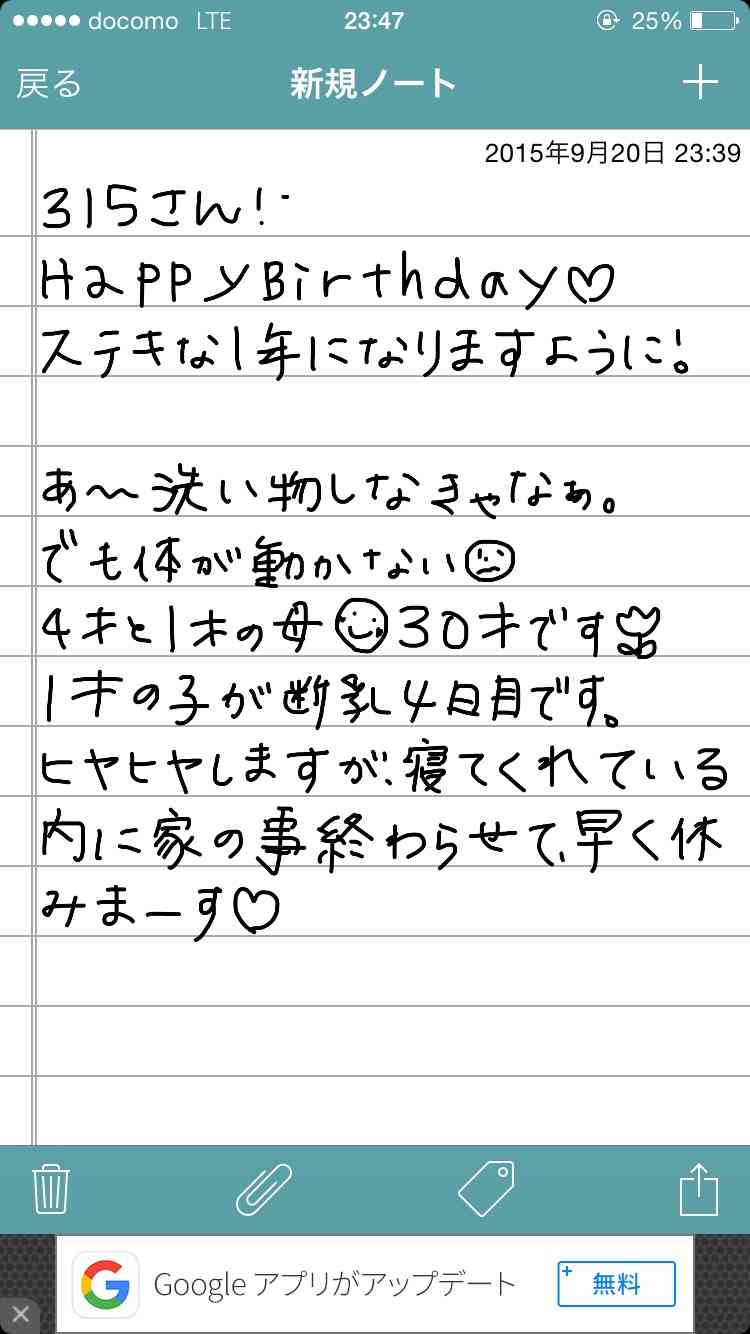 docomo LTE 23:47 25%
戻る 新規ノート
2015年9月20日 23:39
315さん!
HappyBirthday♡
ステキな1年になりますように!
あ〜洗い物しなきゃなぁ。
でも体が動かない
4才と1才の母 30才です
1才の子が断乳4日目です。
ヒヤヒヤしますが、寝てくれている
内に家の事終わらせて、早く休
みまーす♡
Google アプリがアップデート 無料